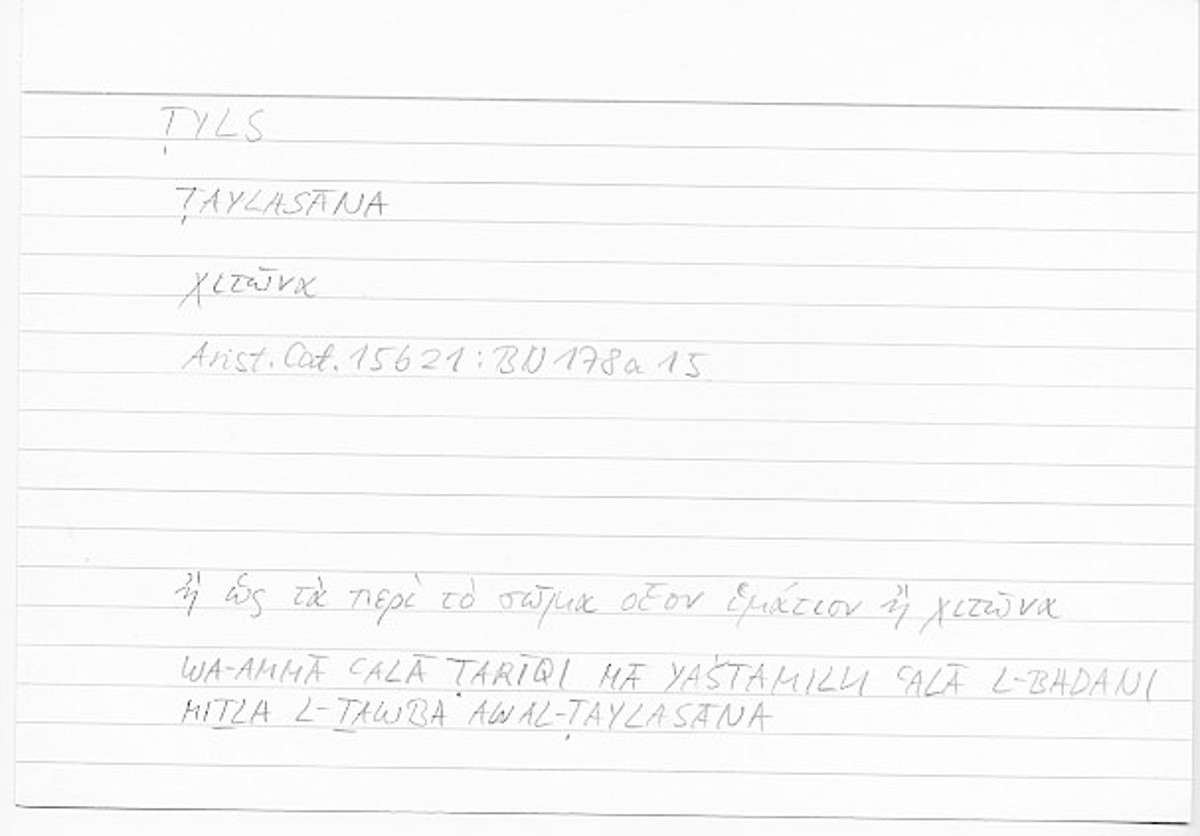 ṬYLS
ṬAYLASĀNA
χιτῶνα
Arist. Cat. 15b21 : BN 178a 15
ἢ ὡς τὰ περὶ τὸ σῶμα οἷον ἱμάτιον ἢ χιτῶνα
WA-AMMĀ ʿALĀ ṬARĪQI MĀ YAŠTAMILU ʿALĀ L-BADANI
MIṮLA L-ṮAWBA AW AL-ṬAYLASĀNA